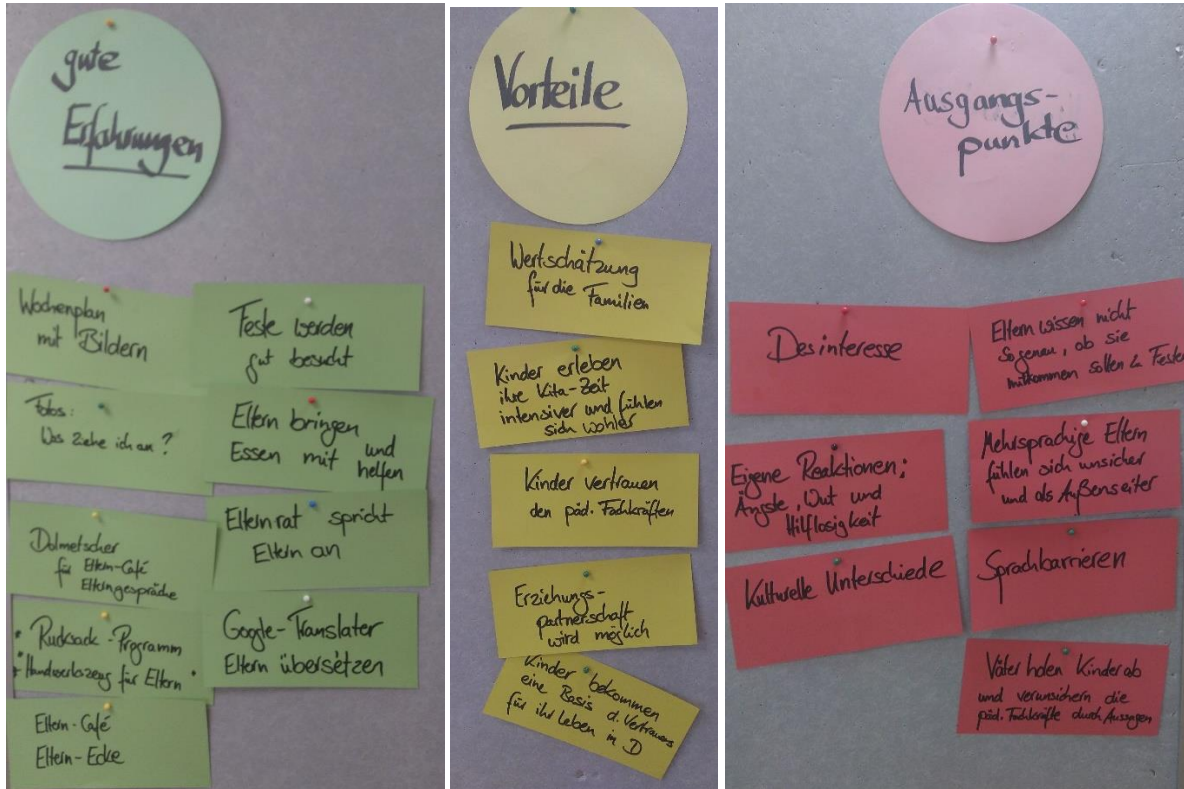 gute
Erfahrungen
Wochenplan
mit Bildern
Fotos:
Was ziehe ich an?
Dolmetscher
für Eltern-Café
Elterngespräche
• Rucksack-Programm
• Handwerkszeug für Eltern •
Eltern-Café
Eltern-Ecke
Feste werden
gut besucht
Eltern bringen
Essen mit und
helfen
Elternrat spricht
Eltern an
Google-Translater
Eltern übersetzen
Vorteile
Wertschätzung
für die Familien
Kinder erleben
ihre Kita-Zeit
intensiver und fühlen
sich wohler
Kinder vertrauen
den päd. Fachkräften
Erziehungs-
partnerschaft
wird möglich
Kinder bekommen
eine Basis d. Vertrauens
für ihr Leben in D
Ausgangs-
punkte
Desinteresse
Eigene Reaktionen:
Ängste, Wut und
Hilflosigkeit
Kulturelle Unterschiede
Eltern wissen nicht
so genau, ob sie
mitkommen sollen z. Festen
Mehrsprachige Eltern
fühlen sich unsicher
und als Außenseiter
Sprachbarrieren
Väter holen Kinder ab
und verunsichern die
päd. Fachkräfte durch Aussagen